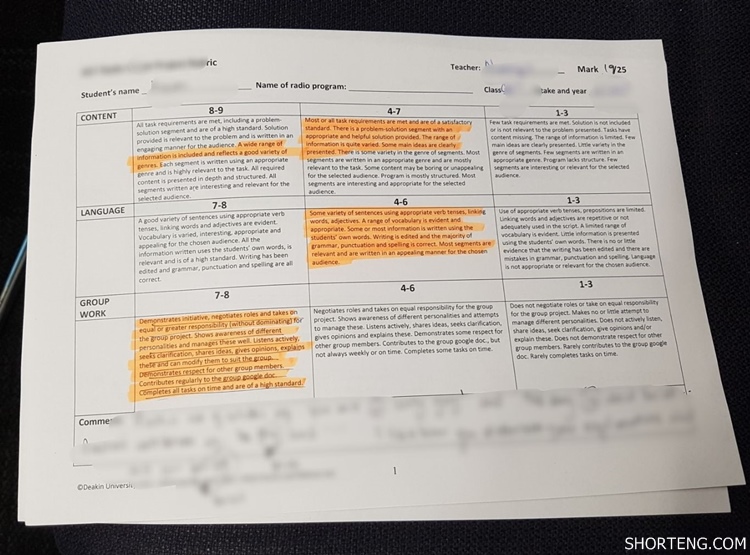 ric
Teacher:
Mark 19/25
Student's name
Name of radio program:
Class
take and year
CONTENT
8-9
4-7
1-3
All task requirements are met, including a problem-
solution segment and are of a high standard. Solution
provided is relevant to the problem and is written in an
engaging manner for the audience. A wide range of
information is included and reflects a good variety of
genres. Each segment is written using an appropriate
genre and is highly relevant to the task. All required
content is presented in depth and structured. All
segments written are interesting and relevant for the
selected audience.
Most or all task requirements are met and are of a satisfactory
standard. There is a problem-solution segment with an
appropriate and helpful solution provided. The range of
information is quite varied. Some main ideas are clearly
presented. There is some variety in the genre of segments. Most
segments are written in an appropriate genre and are mostly
relevant to the task. Some content may be boring or unappealing
for the selected audience. Program is mostly structured. Most
segments are interesting and appropriate for the selected
audience.
Few task requirements are met. Solution is not included
or is not relevant to the problem presented. Tasks have
content missing. The range of information is limited. Few
main ideas are clearly presented. Little variety in the
genre of segments. Few segments are written in an
appropriate genre. Program lacks structure. Few
segments are interesting or relevant for the selected
audience.
LANGUAGE
7-8
4-6
1-3
A good variety of sentences using appropriate verb
tenses, linking words and adjectives are evident.
Vocabulary is varied, interesting, appropriate and
appealing for the chosen audience. All the
information written uses the students' own words, is
relevant and is of a high standard. Writing has been
edited and grammar, punctuation and spelling are all
correct.
Some variety of sentences using appropriate verb tenses, linking
words, adjectives. A range of vocabulary is evident and
appropriate. Some or most information is written using the
students' own words. Writing is edited and the majority of
grammar, punctuation and spelling is correct. Most segments are
relevant and are written in an appealing manner for the chosen
audience.
Use of appropriate verb tenses, prepositions are limited.
Linking words and adjectives are repetitive or not
adequately used in the script. A limited range of
vocabulary is evident. Little information is presented
using the students' own words. There is no or little
evidence that the writing has been edited and there are
mistakes in grammar, punctuation and spelling. Language
is not appropriate or relevant for the chosen audience.
GROUP
WORK
7-8
4-6
1-3
Demonstrates initiative, negotiates roles and takes on
equal or greater responsibility (without dominating) for
the group project. Shows awareness of different
personalities and manages these well. Listens actively,
seeks clarification, shares ideas, gives opinions, explains
these and can modify them to suit the group.
Demonstrates respect for other group members.
Contributes regularly to the group google doc.
Completes all tasks on time and are of a high standard.
Negotiates roles and takes on equal responsibility for the group
project. Shows awareness of different personalities and attempts
to manage these. Listens actively, shares ideas, seeks clarification,
gives opinions and explains these. Demonstrates some respect for
other group members. Contributes to the group google doc., but
not always weekly or on time. Completes some tasks on time.
Does not negotiate roles or take on equal responsibility
for the group project. Makes no or little attempt to
manage different personalities. Does not actively listen,
share ideas, seek clarification, give opinions and/or
explain these. Does not demonstrate respect for other
group members. Rarely contributes to the group google
doc. Rarely completes tasks on time.
Comme
©Deakin Universi
1
SHORTENG.COM